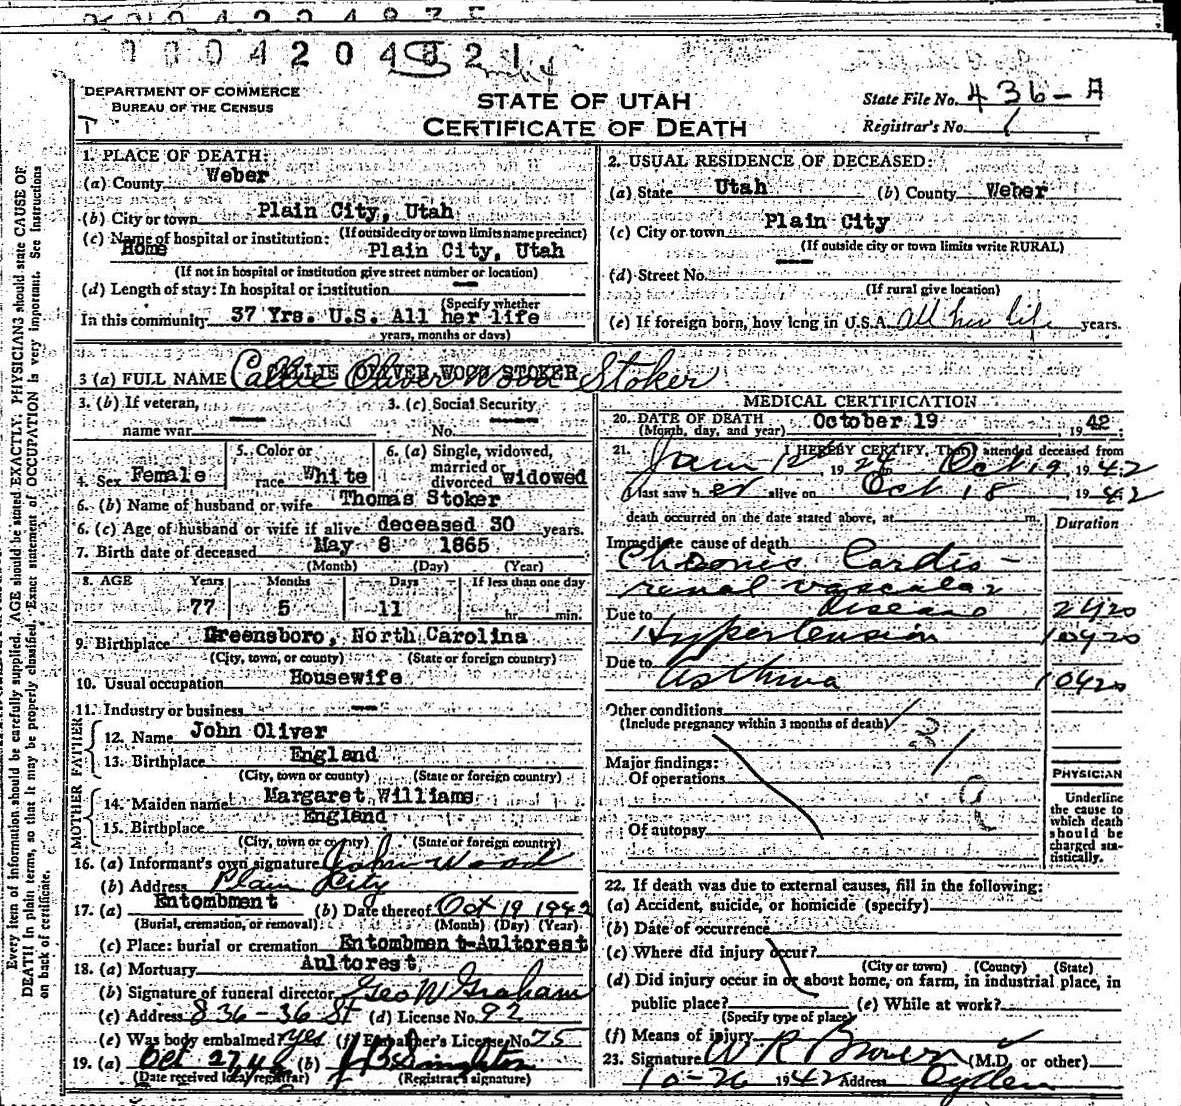 0004204821
DEPARTMENT OF COMMERCE
BUREAU OF THE CENSUS
STATE OF UTAH
CERTIFICATE OF DEATH
State File No. 436-A
Registrar's No. 1
1. PLACE OF DEATH:
(a) County Weber
(b) City or town Plain City, Utah
(If outside city or town limits name precinct)
(c) Name of hospital or institution:
Home Plain City, Utah
(If not in hospital or institution give street number or location)
(d) Length of stay: In hospital or institution —
(Specify whether
In this community 37 Yrs. U.S. All her life
years, months or days)
2. USUAL RESIDENCE OF DECEASED:
(a) State Utah (b) County Weber
(c) City or town Plain City
(If outside city or town limits write RURAL)
(d) Street No. —
(If rural give location)
(e) If foreign born, how long in U.S.A. All her life years.
3 (a) FULL NAME CALLIE OLIVER WOOD STOKER
Callie Oliver Wood Stoker
3. (b) If veteran, name war —
3. (c) Social Security No. —
4. Sex Female
5. Color or race White
6. (a) Single, widowed, married or divorced widowed
6. (b) Name of husband or wife Thomas Stoker
6. (c) Age of husband or wife if alive deceased 30 years.
7. Birth date of deceased May 8 1865
(Month) (Day) (Year)
8. AGE Years Months Days If less than one day
77 5 11 hr. min.
9. Birthplace Greensboro, North Carolina
(City, town, or county) (State or foreign country)
10. Usual occupation Housewife
11. Industry or business —
FATHER
12. Name John Oliver
13. Birthplace England
(City, town or county) (State or foreign country)
MOTHER
14. Maiden name Margaret Williams
15. Birthplace England
(City, town or county) (State or foreign country)
16. (a) Informant's own signature John Wood
(b) Address Plain City
17. (a) Entombment (b) Date thereof Oct 19 1942
(Burial, cremation, or removal) (Month) (Day) (Year)
(c) Place: burial or cremation Entombment-Aultorest
18. (a) Mortuary Aultorest
(b) Signature of funeral director Geo W Graham
(c) Address 836-36 St (d) License No. 92
(e) Was body embalmed? yes (f) Embalmer's License No 75
19. (a) Oct 27 42 (b)
(Date received local registrar) (Registrar's signature)
MEDICAL CERTIFICATION
20. DATE OF DEATH October 19 1942
(Month, day, and year)
21. I HEREBY CERTIFY, That I attended deceased from
Jan 12 1924 to Oct 19 1942
I last saw her alive on Oct 18 1942
death occurred on the date stated above, at m.
Duration
Immediate cause of death
Chronic Cardio-
renal vascular
Due to disease
Hypertension
Due to
Asthma
Other conditions
(Include pregnancy within 3 months of death)
Major findings:
Of operations
Of autopsy
PHYSICIAN
Underline
the cause to
which death
should be
charged sta-
tistically.
22. If death was due to external causes, fill in the following:
(a) Accident, suicide, or homicide (specify)
(b) Date of occurrence
(c) Where did injury occur?
(City or town) (County) (State)
(d) Did injury occur in or about home, on farm, in industrial place, in
public place? (e) While at work?
(Specify type of place)
(f) Means of injury
23. Signature W R Brown (M.D. or other)
10-26 1942 Address Ogden
Every item of information should be carefully supplied. AGE should be stated EXACTLY. PHYSICIANS should state CAUSE OF
DEATH in plain terms, so that it may be properly classified. Exact statement of OCCUPATION is very important. See Instructions
on back of certificate.